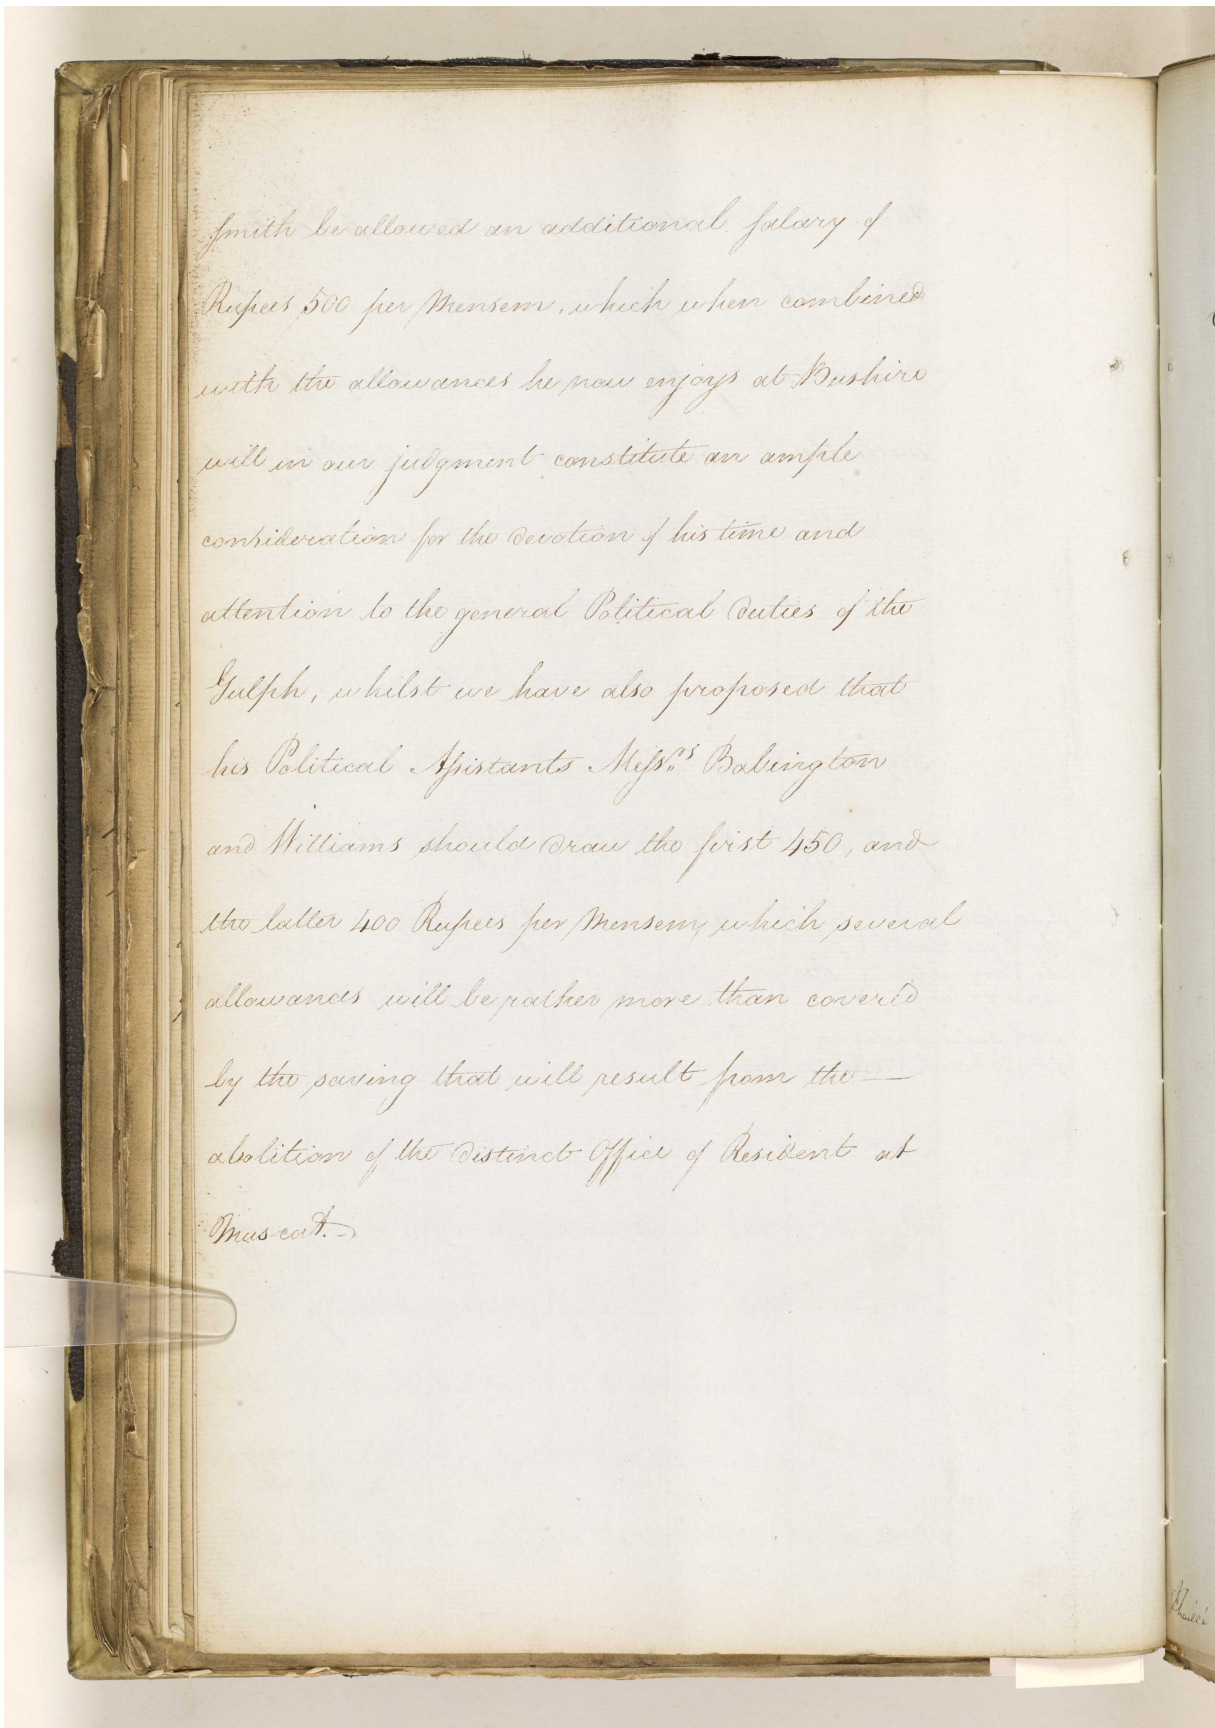 Smith be allowed an additional salary of
Rupees 500 per Mensem, which when combined
with the allowances he now enjoys at Bushire
will in our judgment constitute an ample
consideration for the devotion of his time and
attention to the general Political duties of the
Gulph, whilst we have also proposed that
his Political Assistants Messrs Babington
and Williams should draw the first 450, and
the latter 400 Rupees per Mensem, which several
allowances will be rather more than covered
by the saving that will result from the —
abolition of the distinct Office of Resident at
Muscat.